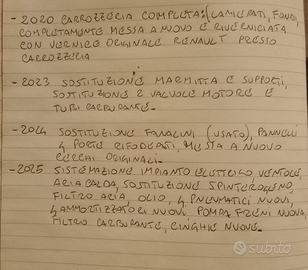 - 2020 CARROZZERIA COMPLETA: (LAMIERATI, FONDI,
COMPLETAMENTE MESSA A NUOVO E RIVERNICIATA
CON VERNICE ORIGINALE RENAULT PRESSO
CARROZZERIA
- 2023 SOSTITUZIONE MARMITTA E SUPPORTI,
SOSTITUZIONE 2 VALVOLE MOTORE E
TUBI CARBURANTE.
- 2024 SOSTITUZIONE FANALINI (USATO), PANNELLI
4 PORTE RIFODERATI, MESSA A NUOVO
CERCHI ORIGINALI.
- 2025 SISTEMAZIONE IMPIANTO ELETTRICO, VENTOLE,
ARIA CALDA, SOSTITUZIONE SPINTEROGENO,
FILTRO ARIA, OLIO, 4 PNEUMATICI NUOVI,
4 AMMORTIZZATORI NUOVI, POMPA FRENI NUOVA,
FILTRO CARBURANTE, CINGHIE NUOVE.
subito